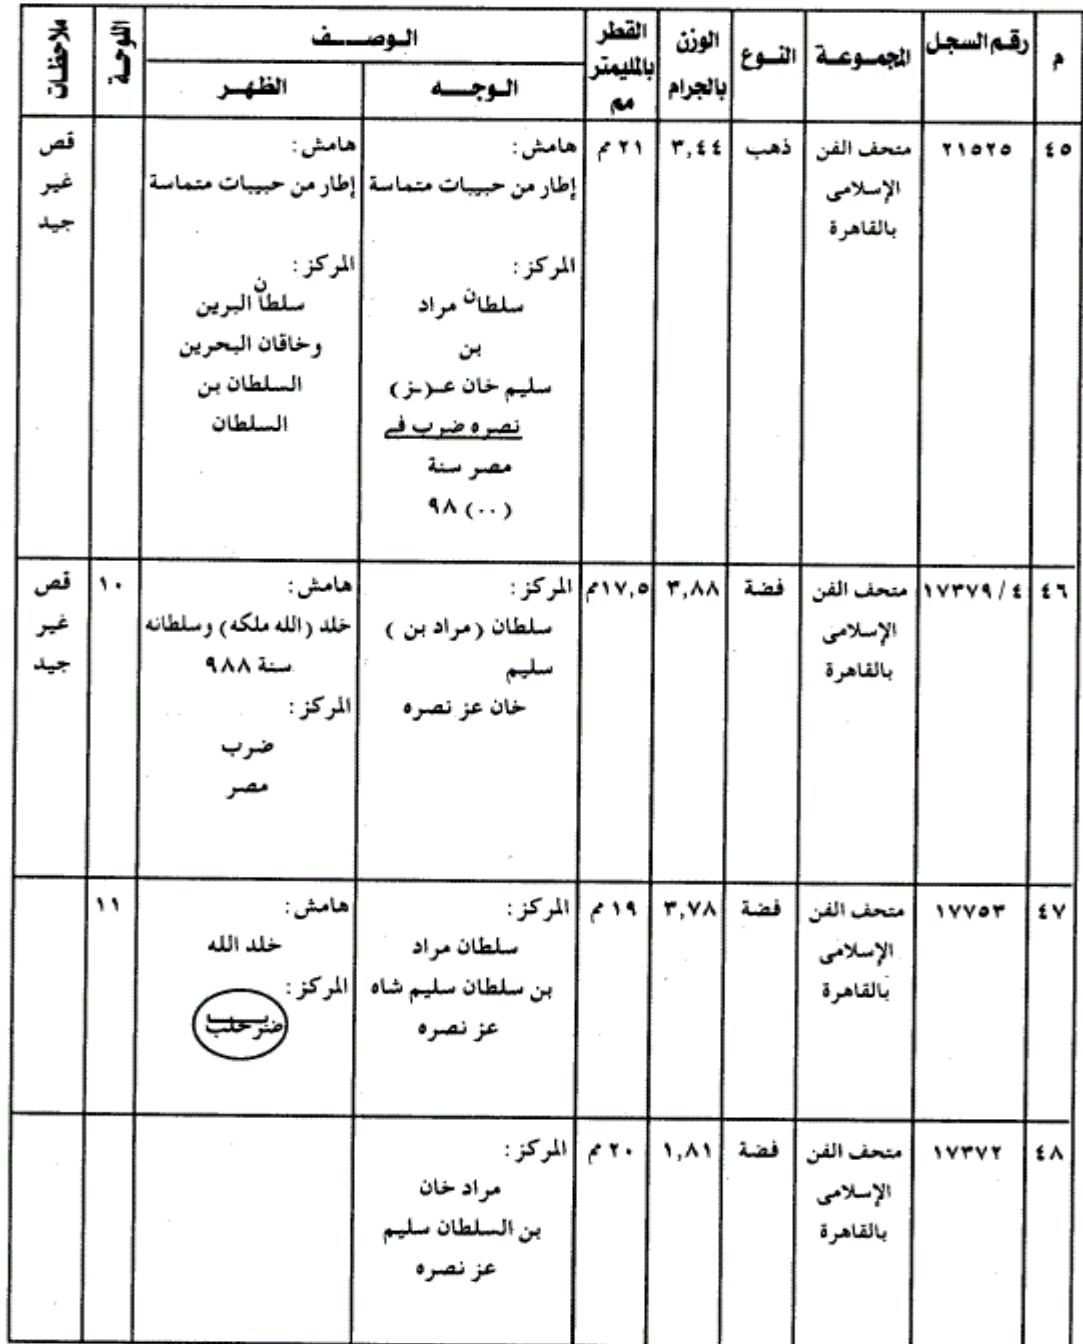 م
رقم السجل
المجموعة
النوع
الوزن
بالجرام
القطر
بالمليمتر
مم
الوصف
الوجه
الظهر
اللوحة
ملاحظات
٤٥
٢١٥٢٥
متحف الفن
الإسلامى
بالقاهرة
ذهب
٣,٤٤
٢١ مم
هامش :
إطار من حبيبات متماسة
المركز :
سلطان مراد
بن
سليم خان عـ(ـز)
نصره ضرب فى
مصر سنة
(٠٠) ٩٨
هامش :
إطار من حبيبات متماسة
المركز :
سلطان البرين
وخاقان البحرين
السلطان بن
السلطان
قص
غير
جيد
٤٦
١٧٣٧٩ / ٤
متحف الفن
الإسلامى
بالقاهرة
فضة
٣,٨٨
١٧,٥مم
المركز :
سلطان (مراد بن )
سليم
خان عز نصره
هامش :
خلد (الله ملكه) وسلطانه
سنة ٩٨٨
المركز :
ضرب
مصر
١٠
قص
غير
جيد
٤٧
١٧٧٥٣
متحف الفن
الإسلامى
بالقاهرة
فضة
٣,٧٨
١٩ مم
المركز :
سلطان مراد
بن سلطان سليم شاه
عز نصره
هامش :
خلد الله
المركز :
ضرب حلب
١١
٤٨
١٧٣٧٢
متحف الفن
الإسلامى
بالقاهرة
فضة
١,٨١
٢٠ مم
المركز :
مراد خان
بن السلطان سليم
عز نصره